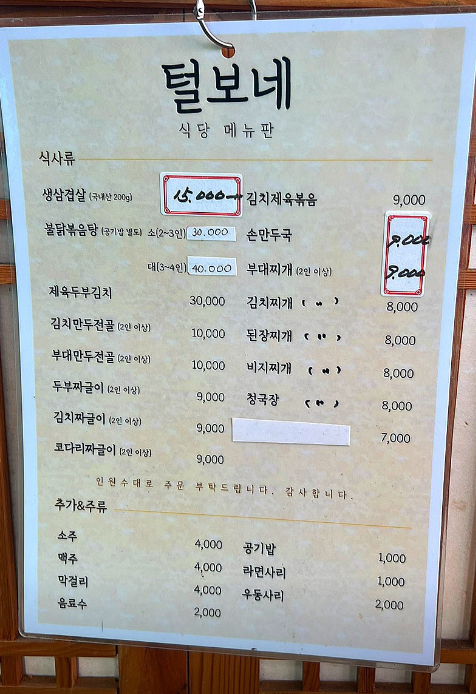 털보네
식당 메뉴판
식사류
생삼겹살 (국내산 200g) 15.000
불닭볶음탕 (공기밥 별도) 소(2~3인) 30.000
대(3~4인) 40.000
제육두부김치 30,000
김치만두전골 (2인 이상) 10,000
부대만두전골 (2인 이상) 10,000
두부짜글이 (2인 이상) 9,000
김치짜글이 (2인 이상) 9,000
코다리짜글이 (2인 이상) 9,000
김치제육볶음 9,000
손만두국 9.000
부대찌개 (2인 이상) 9.000
김치찌개 ( 〃 ) 8,000
된장찌개 ( 〃 ) 8,000
비지찌개 ( 〃 ) 8,000
청국장 ( 〃 ) 8,000
7,000
인원수대로 주문 부탁드립니다. 감사합니다.
추가&주류
소주 4,000
맥주 4,000
막걸리 4,000
음료수 2,000
공기밥 1,000
라면사리 1,000
우동사리 2,000